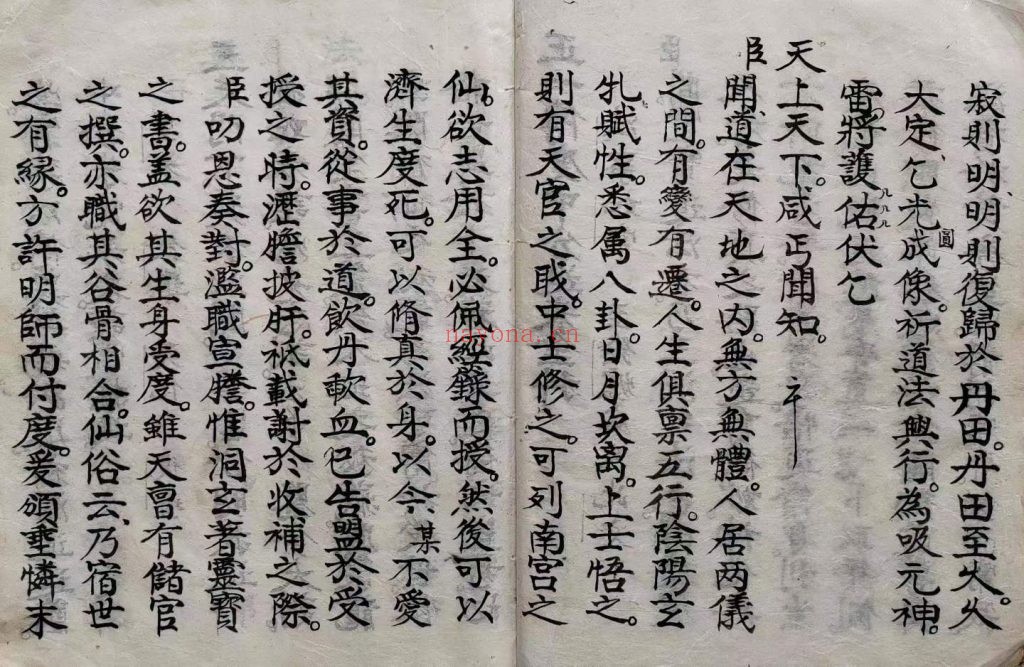 寂則明、明則復歸於丹田。丹田至火。久
大定、乞光圓成像。祈道法興行。為吸元神。
雷將護佑伏乞
天上天下。咸丐聞知。
臣聞道在天地之内。無方無體。人居两儀
之間。有變有遷。人生俱禀五行。陰陽玄
牝賦性。悉属八卦。日月坎离。上士悟之。
則有天官之戢。中士修之。可列南宫之
仙。欲志用全。必佩經籙而授。然後可以
濟生度死。可以脩真於身。以今某不愛
其資。從事於道。飲丹歃血。已告盟於受
授之時。瀝膽披肝。祗載謝於收補之際。
臣叨恩奏對。濫職宣謄。惟洞玄著靈寳
之書。盖欲其生身受度。雖天曺有儲官
之撰。亦職其谷骨相合。仙俗云、乃宿世
之有緣。方許明師而付度。爰頒垂憐末
nayona.cn